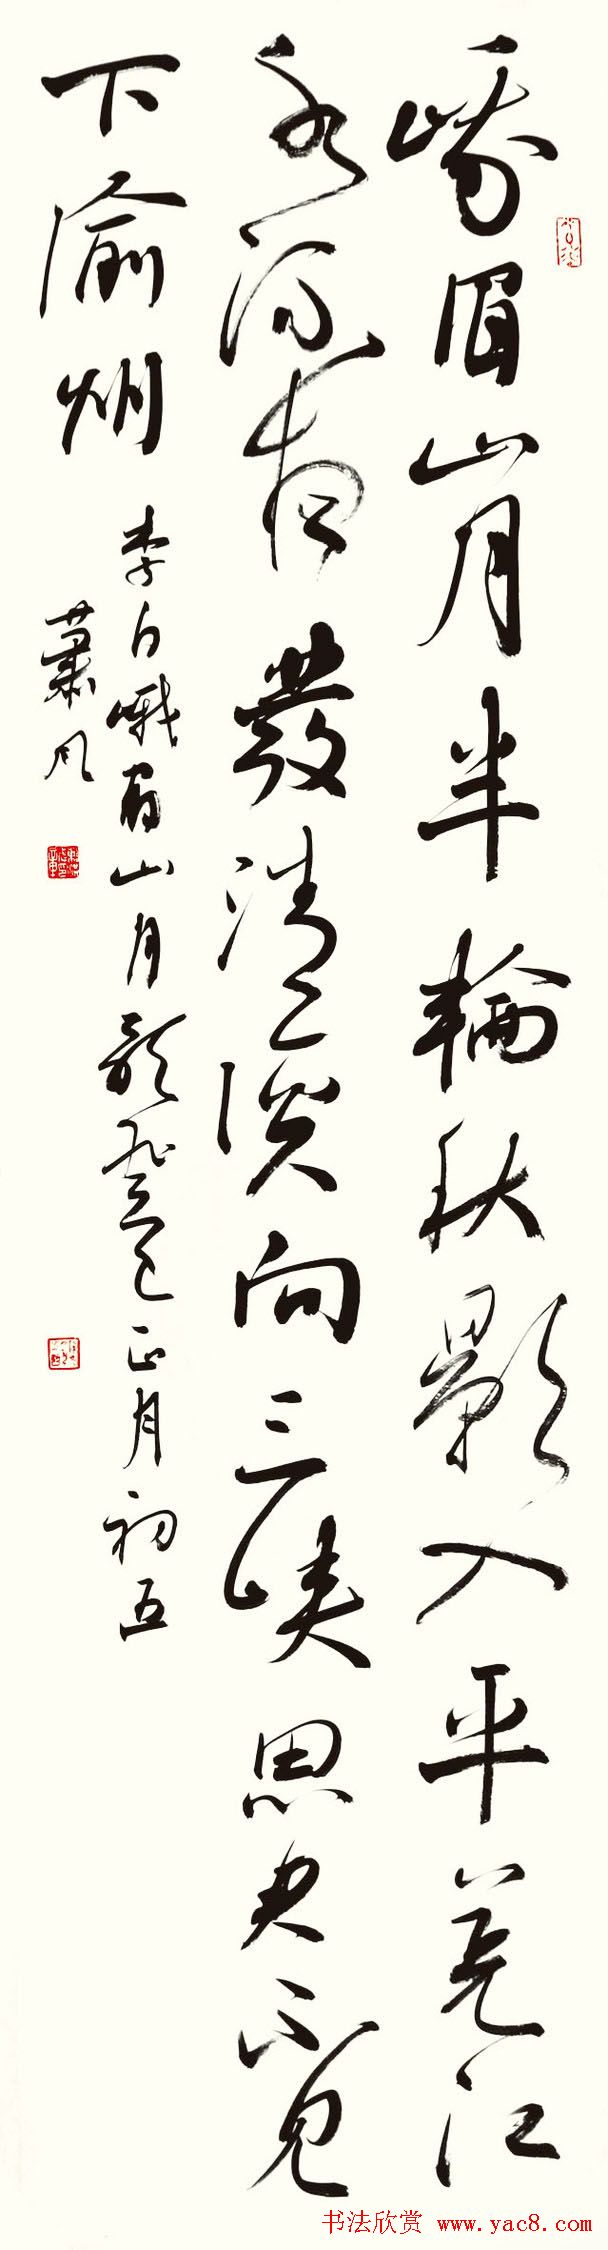 峨眉山月半輪秋影入平羌江
水流夜發清溪向三峽思君不見
下渝州 李白峨眉山月歌癸巳正月初五
蕭風
书法欣赏 www.yac8.com